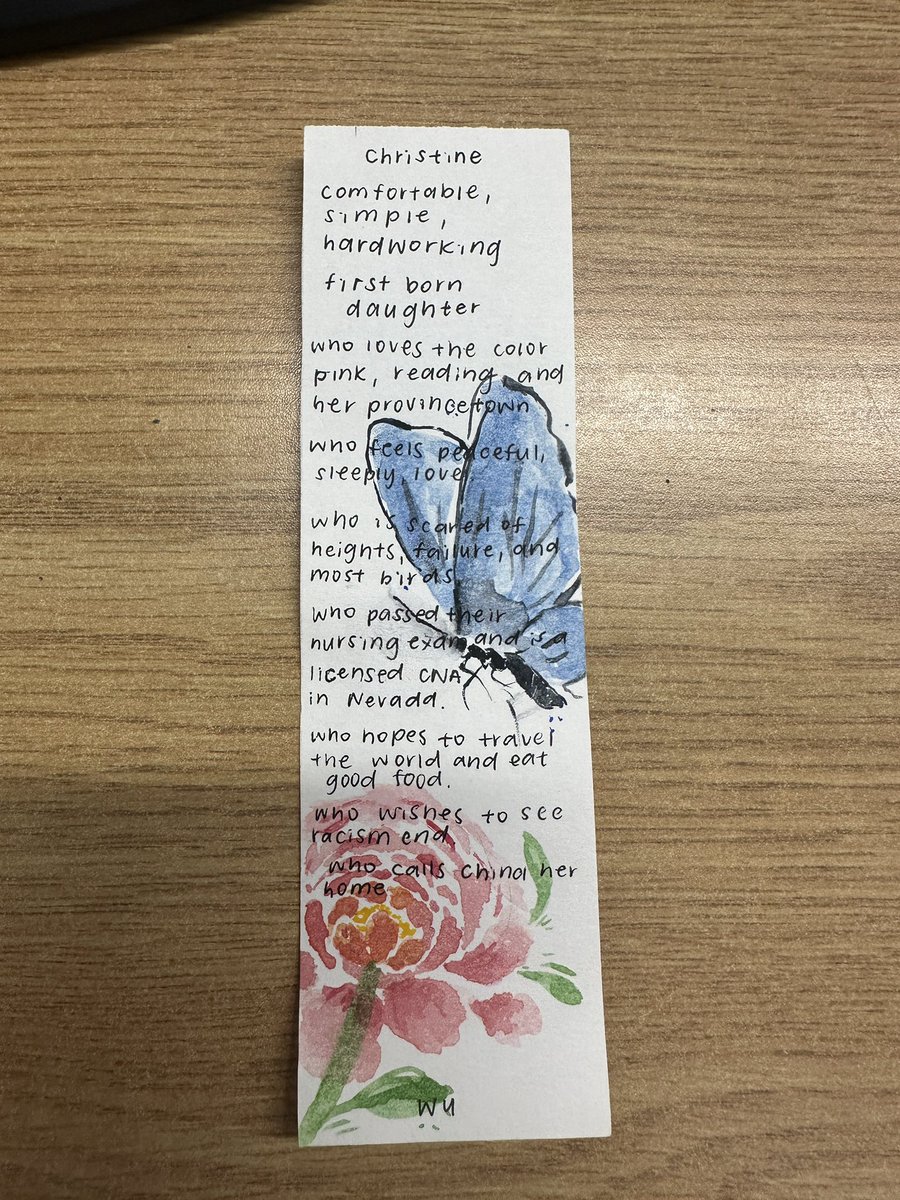 Christine
comfortable,
simple,
hardworking
first born
daughter
who loves the color
pink, reading, and
her province town
who feels peaceful,
sleeply, love
who is scared of
heights, failure, and
most birds
who passed their
nursing exam and is a
licensed CNA
in Nevada.
who hopes to travel
the world and eat
good food.
who wishes to see
racism end
who calls china her
home
Wu